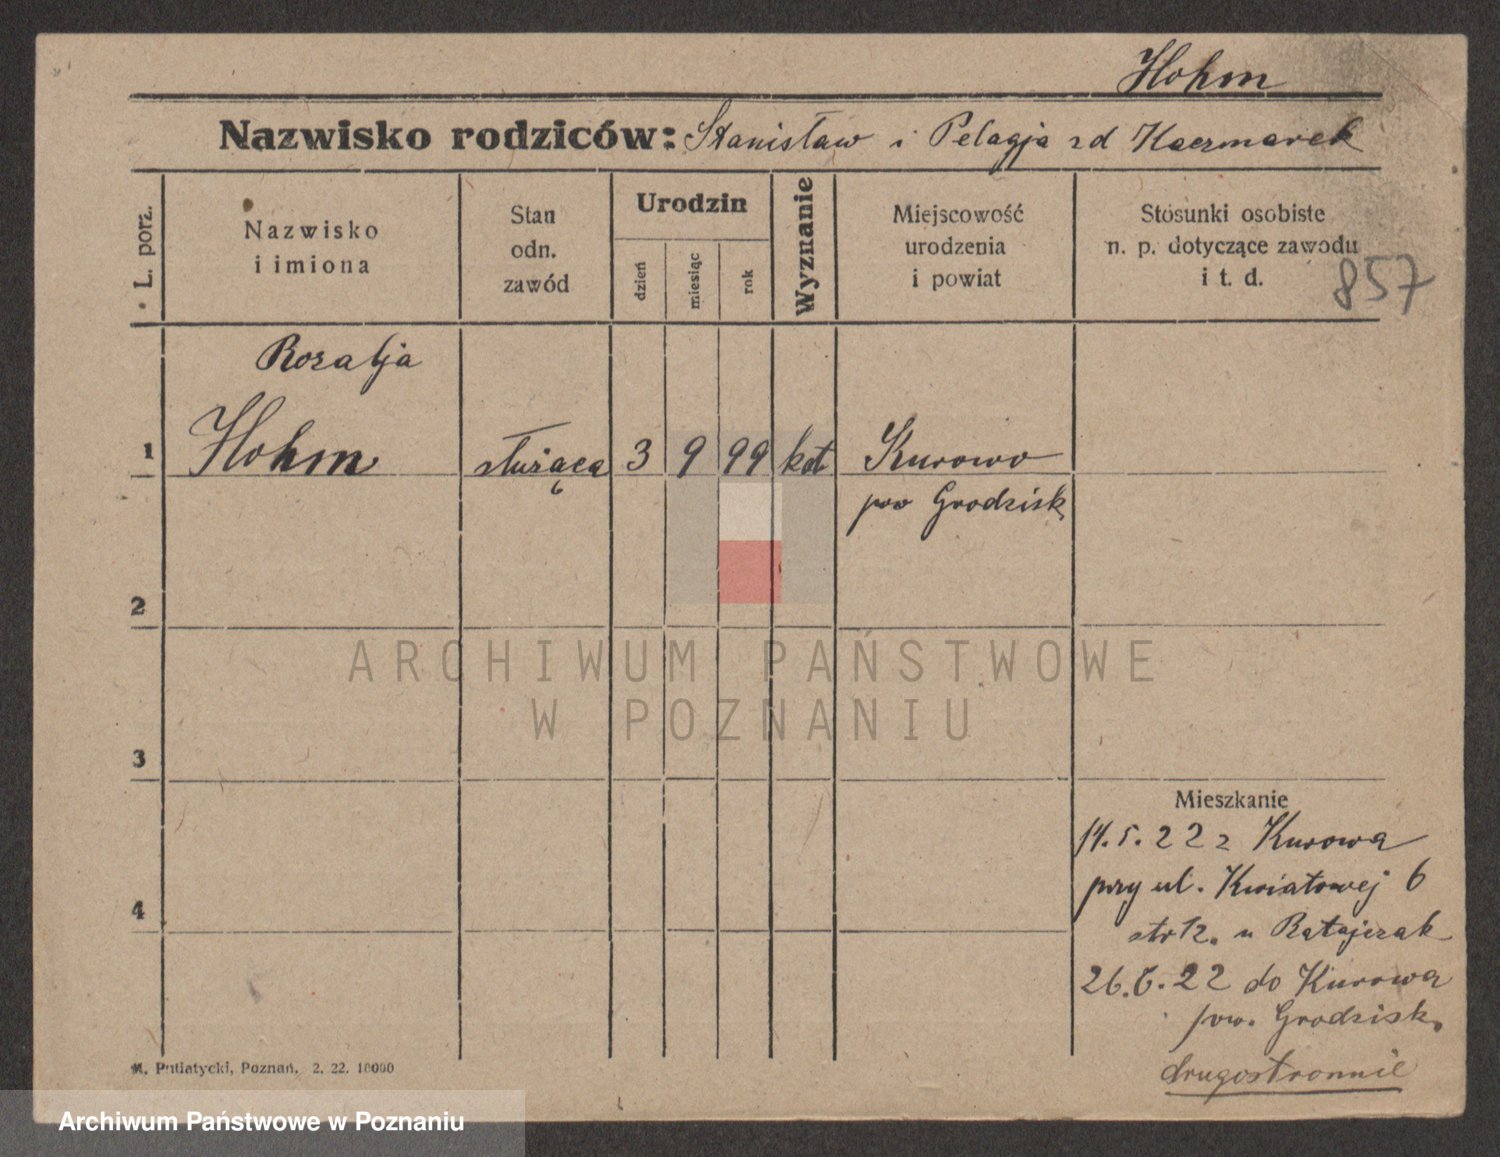 Hohm
Nazwisko rodziców: Stanisław i Pelagja zd Kaczmarek
L. porz.
Nazwisko
i imiona
Stan
odn.
zawód
Urodzin
dzień
miesiąc
rok
Wyznanie
Miejscowość
urodzenia
i powiat
Stosunki osobiste
n. p. dotyczące zawodu
i t. d.
857
Rozalja
1 Hohm służąca 3 9 99 kat Kurowo
pow Grodzisk
2
3
4
Mieszkanie
14.5.22 z Kurowa
przy ul. Kwiatowej 6
u Ratajczak
26.6.22 do Kurowa
pow. Grodzisk
drugostronnie
M. Putiatycki, Poznań. 2. 22. 10000
ARCHIWUM PAŃSTWOWE
W POZNANIU
Archiwum Państwowe w Poznaniu